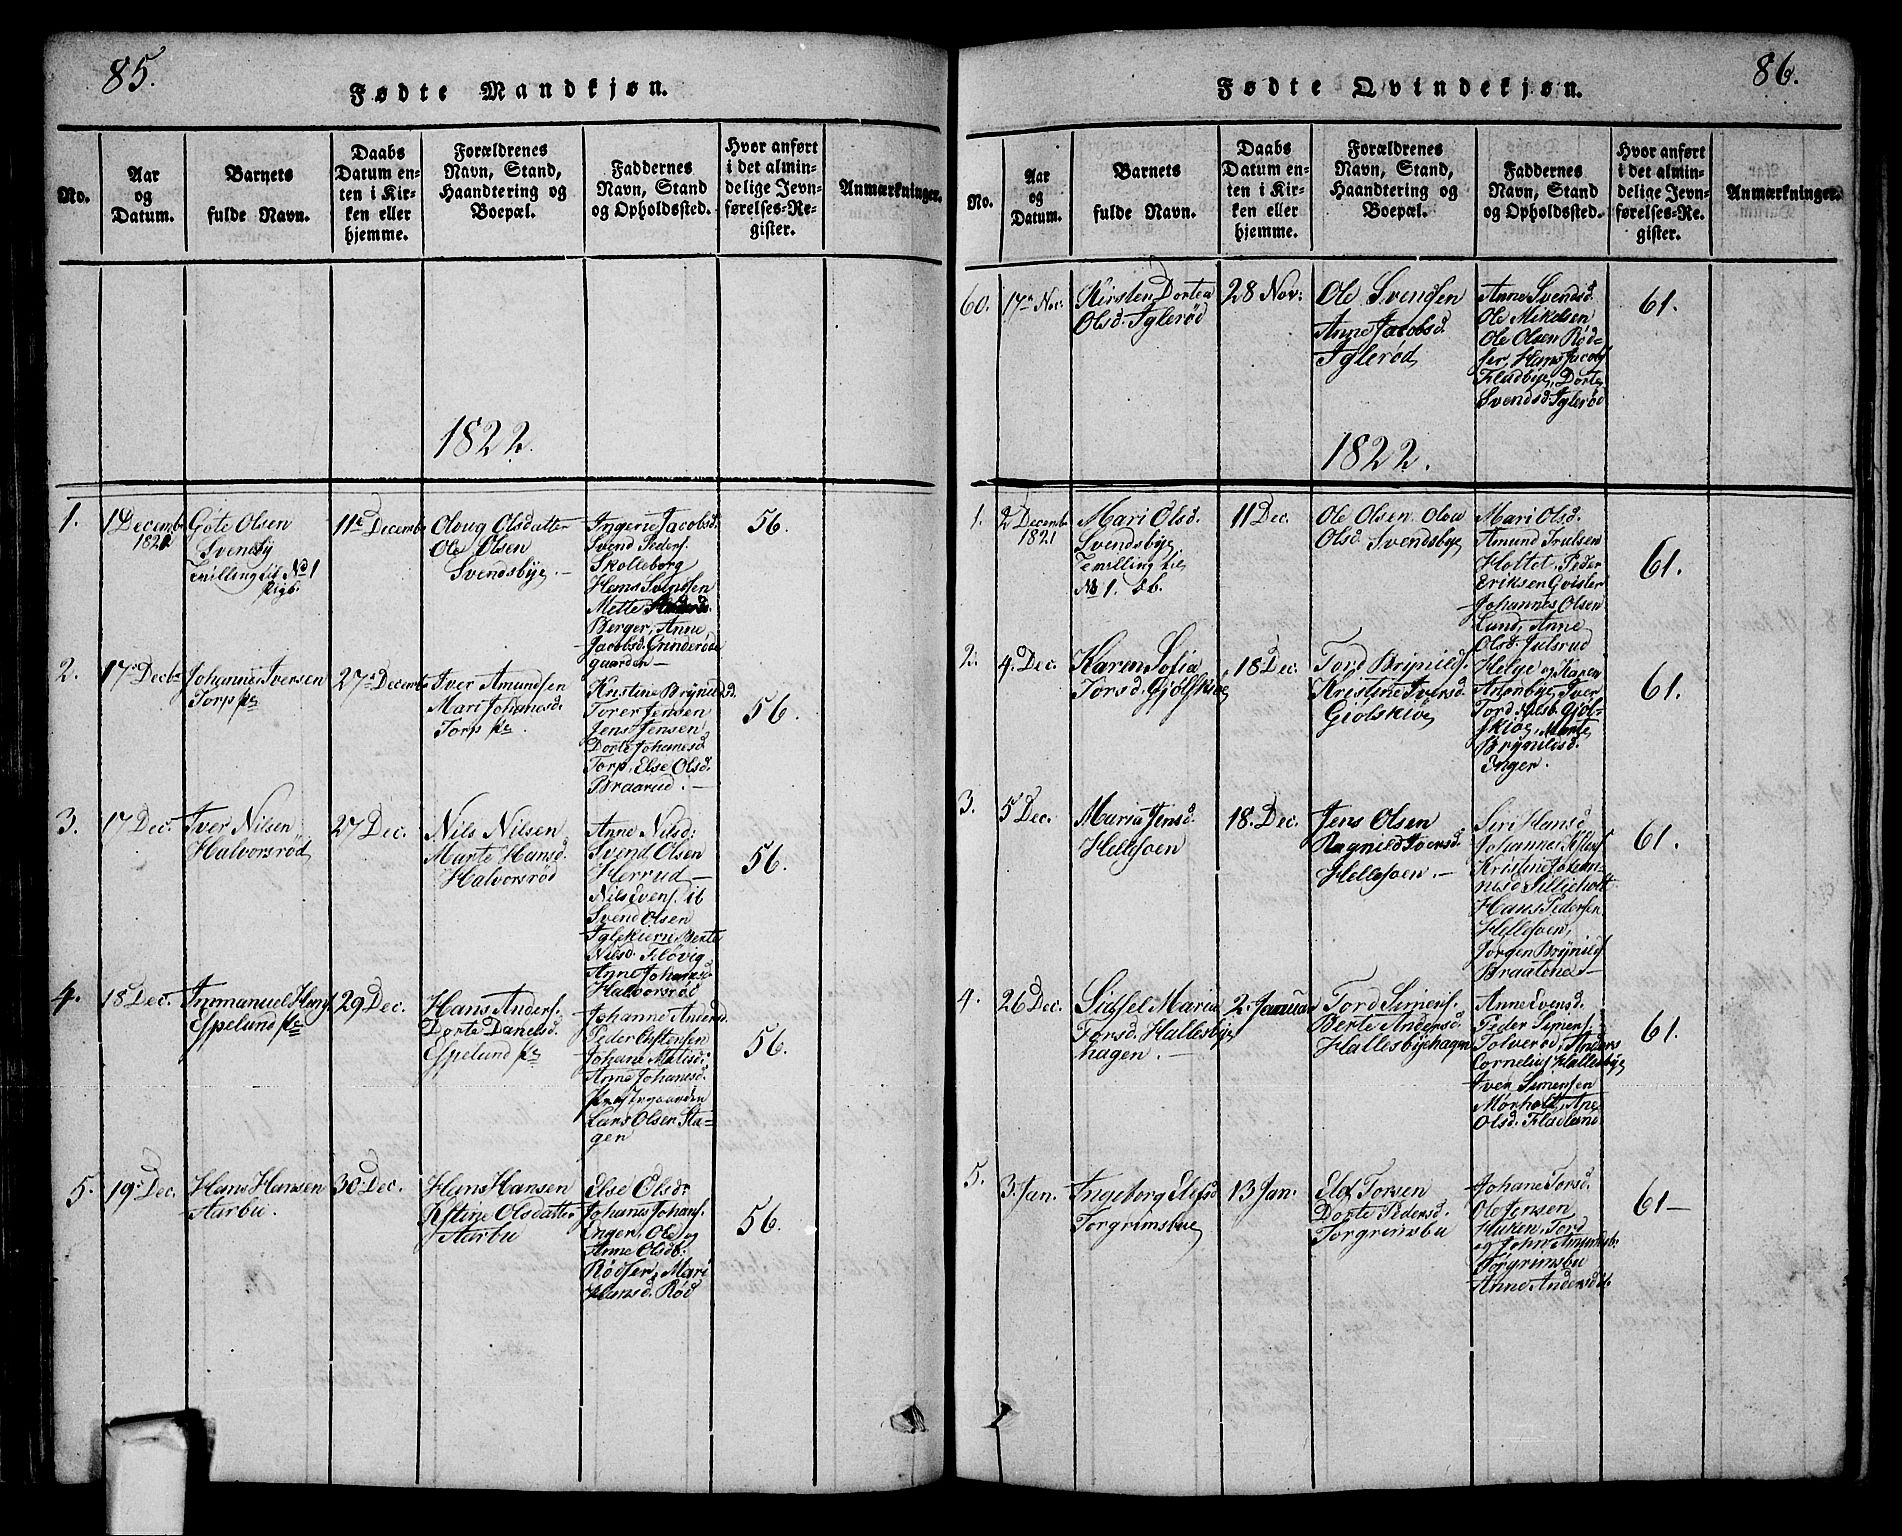 85.
Fødte Mandkjøn.
No.
Aar
og
Datum.
Barnets
fulde Navn.
Daabs
Datum en-
ten i Kir-
ken eller
hjemme.
Forældrenes
Navn, Stand,
Haandtering og
Boepæl.
Faddernes
Navn, Stand
og Opholdssted.
Hvor anført
i det almin-
delige Jevn-
førelses-Re-
gister.
Anmærkninger.
1822.
1.
1 Decemb
1821
Göte Olsen
Svendsby
Tvilling til No 1
Pigb.
11te Decemb
Olaug Olsdatter
Ole Olsen
Svendsbye. —
Ingerie Jacobsd.
Svend Peders.
Skolleborg
Hans Svendsen
Mette
Berger, Anne
Jacobsd. Grinderöde
gaarden —
56.
2.
17 Decbr
Johannes Iversen
Torp
27 Decemb
Iver Amundsen
Mari Johanesd.
Torp
Kristine Brÿnilds.
Torer Jensen
Jens Jensen
Dorte Johanesd
Torp, Else Olsd.
Braarud. —
56.
3.
17 Dec.
Iver Nilsen
Halvorsrød
27 Dec.
Nils Nilsen
Marte Hansd.
Halvorsrød
Anne Nilsd:
Svend Olsen
Herrud —
Nils Svens. ib
Svend Olsen
Iglekiern, Berte
Nilsd. Fløvig
Anne Johansd
Halvorsrød
56.
4.
18 Dec.
Immanuel Hans.
Espelund
29 Dec.
Hans Anders.
Dorte Danelsd.
Espelund
Johanne Andersd
Peder Chstensen
Johane Matsd:
Anne Johansd.
Prestegaarden
Lars Olsen Sta-
gen
56.
5.
19 Dec.
Hans Hansen
Aarbu.
30 Dec.
Hans Hansen
Kstine Olsdatter
Aarbu
Else Olsd:
Johanes Johans.
Enger, Ole og
Anne Olsdb:
Rødser, Mari
Hansd. Rød
56.
86.
Fødte Qvindekjøn.
No.
Aar
og
Datum.
Barnets
fulde Navn.
Daabs
Datum en-
ten i Kir-
ken eller
hjemme.
Forældrenes
Navn, Stand,
Haandtering og
Boepæl.
Faddernes
Navn, Stand
og Opholdssted.
Hvor anført
i det almin-
delige Jevn-
førelses-Re-
gister.
Anmærkninger.
60.
17 Nov:
Kirsten Dortea
Olsd. Iglerød
28 Nov:
Ole Svendsen
Anne Jacobsd.
Iglerød
Anne Svendsd.
Ole Mikelsen
Ole Olsen Rød-
ser, Hans Jacobs.
Fladbye, Dorte
Svendsd. Iglerød
61.
1822.
1.
2 Decemb
1821
Mari Olsd.
Svendsbye
Tvilling til
No 1.
11 Dec.
Ole Olsen. Olea
Olsd. Svendsbye
Mari Olsd.
Amund Trulsen
Holtet, Peder
Eriksen Gvister
Johannes Olsen
Lund, Anne
Olsd. Julsrud
61.
2.
4. Dec.
Karen Sofia
Torsd. Gjølskiøe
18 Dec.
Tord Brÿnilds.
Kristine Iversd.
Giölskiöe
Helge og Karen
Antonbye, Iver
Tord Nilsb. Gjöl-
skiöe, Marte
Brÿnildsd.
Enger.
61.
3.
5 Dec.
Maria Jensd.
Hellesoen
18. Dec.
Jens Olsen
Ragnild Iversd.
Hellesoen. —
Siri Hansd
Johannes
Kristine Johan-
nesd Sillieholt
Hans Pedersen
Hellesoen,
Jørgen Brÿnilds
Braatene. —
61.
4.
26 Dec.
Sidsel Maria
Torsd. Hallesbye
hagen. —
2. Januar
Tord Simens.
Berte Andersd.
Hallesbyehagen
Anne Svensd.
Peder Simens.
Tolverød, Anders
Cornelius Hallesbye
Iver Simensen
Mørholt, Ane
Olsd. Fladene
61.
5.
3. Jan.
Ingeborg Elefsd
Torgrimsbue
13 Jan.
Elef Torsen
Dorte Pedersd.
Torgrimsbu
Johane Torsd.
Ole Jensen
Huren, Tord
og John Amundsb.
Torgrimsbu
Anne Andersd ib.
61 —